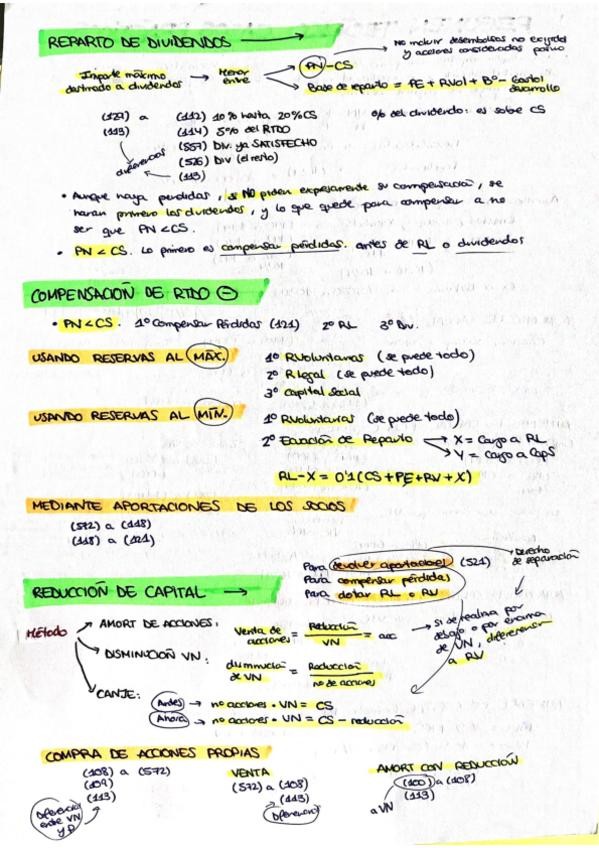 REPARTO DE DIVIDENDOS →
No incluir desembolsos no exigidos
y acciones consideradas pasivo
Importe máximo
destinado a dividendos → Menor
entre
PN - CS
Base de reparto = PE + RVol + Bº - Gastos
desarrollo
(129) a (112) 10% hasta 20% CS
% del dividendo: es sobre CS
(113) (114) 5% del RTDO
(557) Div. ya SATISFECHO
(526) Div (el resto)
(113)
diferencias
• Aunque haya perdidas, si NO piden expresamente su compensación, se
harán primero los dividendos, y lo que quede para compensar a no
ser que PN < CS.
• PN < CS. Lo primero es compensar pérdidas. antes de RL o dividendos
COMPENSACIÓN DE RTDO ⊖
• PN < CS. 1º Compensar Pérdidas (121) 2º RL 3º Div.
USANDO RESERVAS AL MÁX.
1º RVoluntarias (se puede todo)
2º RLegal (se puede todo)
3º Capital Social
USANDO RESERVAS AL MÍN.
1º RVoluntarias (se puede todo)
2º Ecuación de Reparto → X = Cargo a RL
→ Y = Cargo a CapS
RL-X = 0'1 (CS + PE + RV + X)
MEDIANTE APORTACIONES DE LOS SOCIOS
(572) a (118)
(118) a (121)
REDUCCIÓN DE CAPITAL →
Para devolver aportaciones (521)
Para compensar pérdidas
Para dotar RL o RV
→ Derecho
de separación
Método
AMORT DE ACCIONES:
Venta de
acciones = Reducción / VN = acc
→ si se realiza por
debajo o por encima
de VN, diferencia
a RV
DISMINUCIÓN VN:
disminución
de VN = Reducción / nº de acciones
CANJE:
Antes → nº acciones · VN = CS
Ahora → nº acciones · VN = CS - reducción
COMPRA DE ACCIONES PROPIAS
(108) a (572)
(109)
(113)
Diferencia
entre VN
y P
VENTA
(572) a (108)
(113)
Diferencia
AMORT CON REDUCCIÓN
(100) a (108)
(113)
a VN